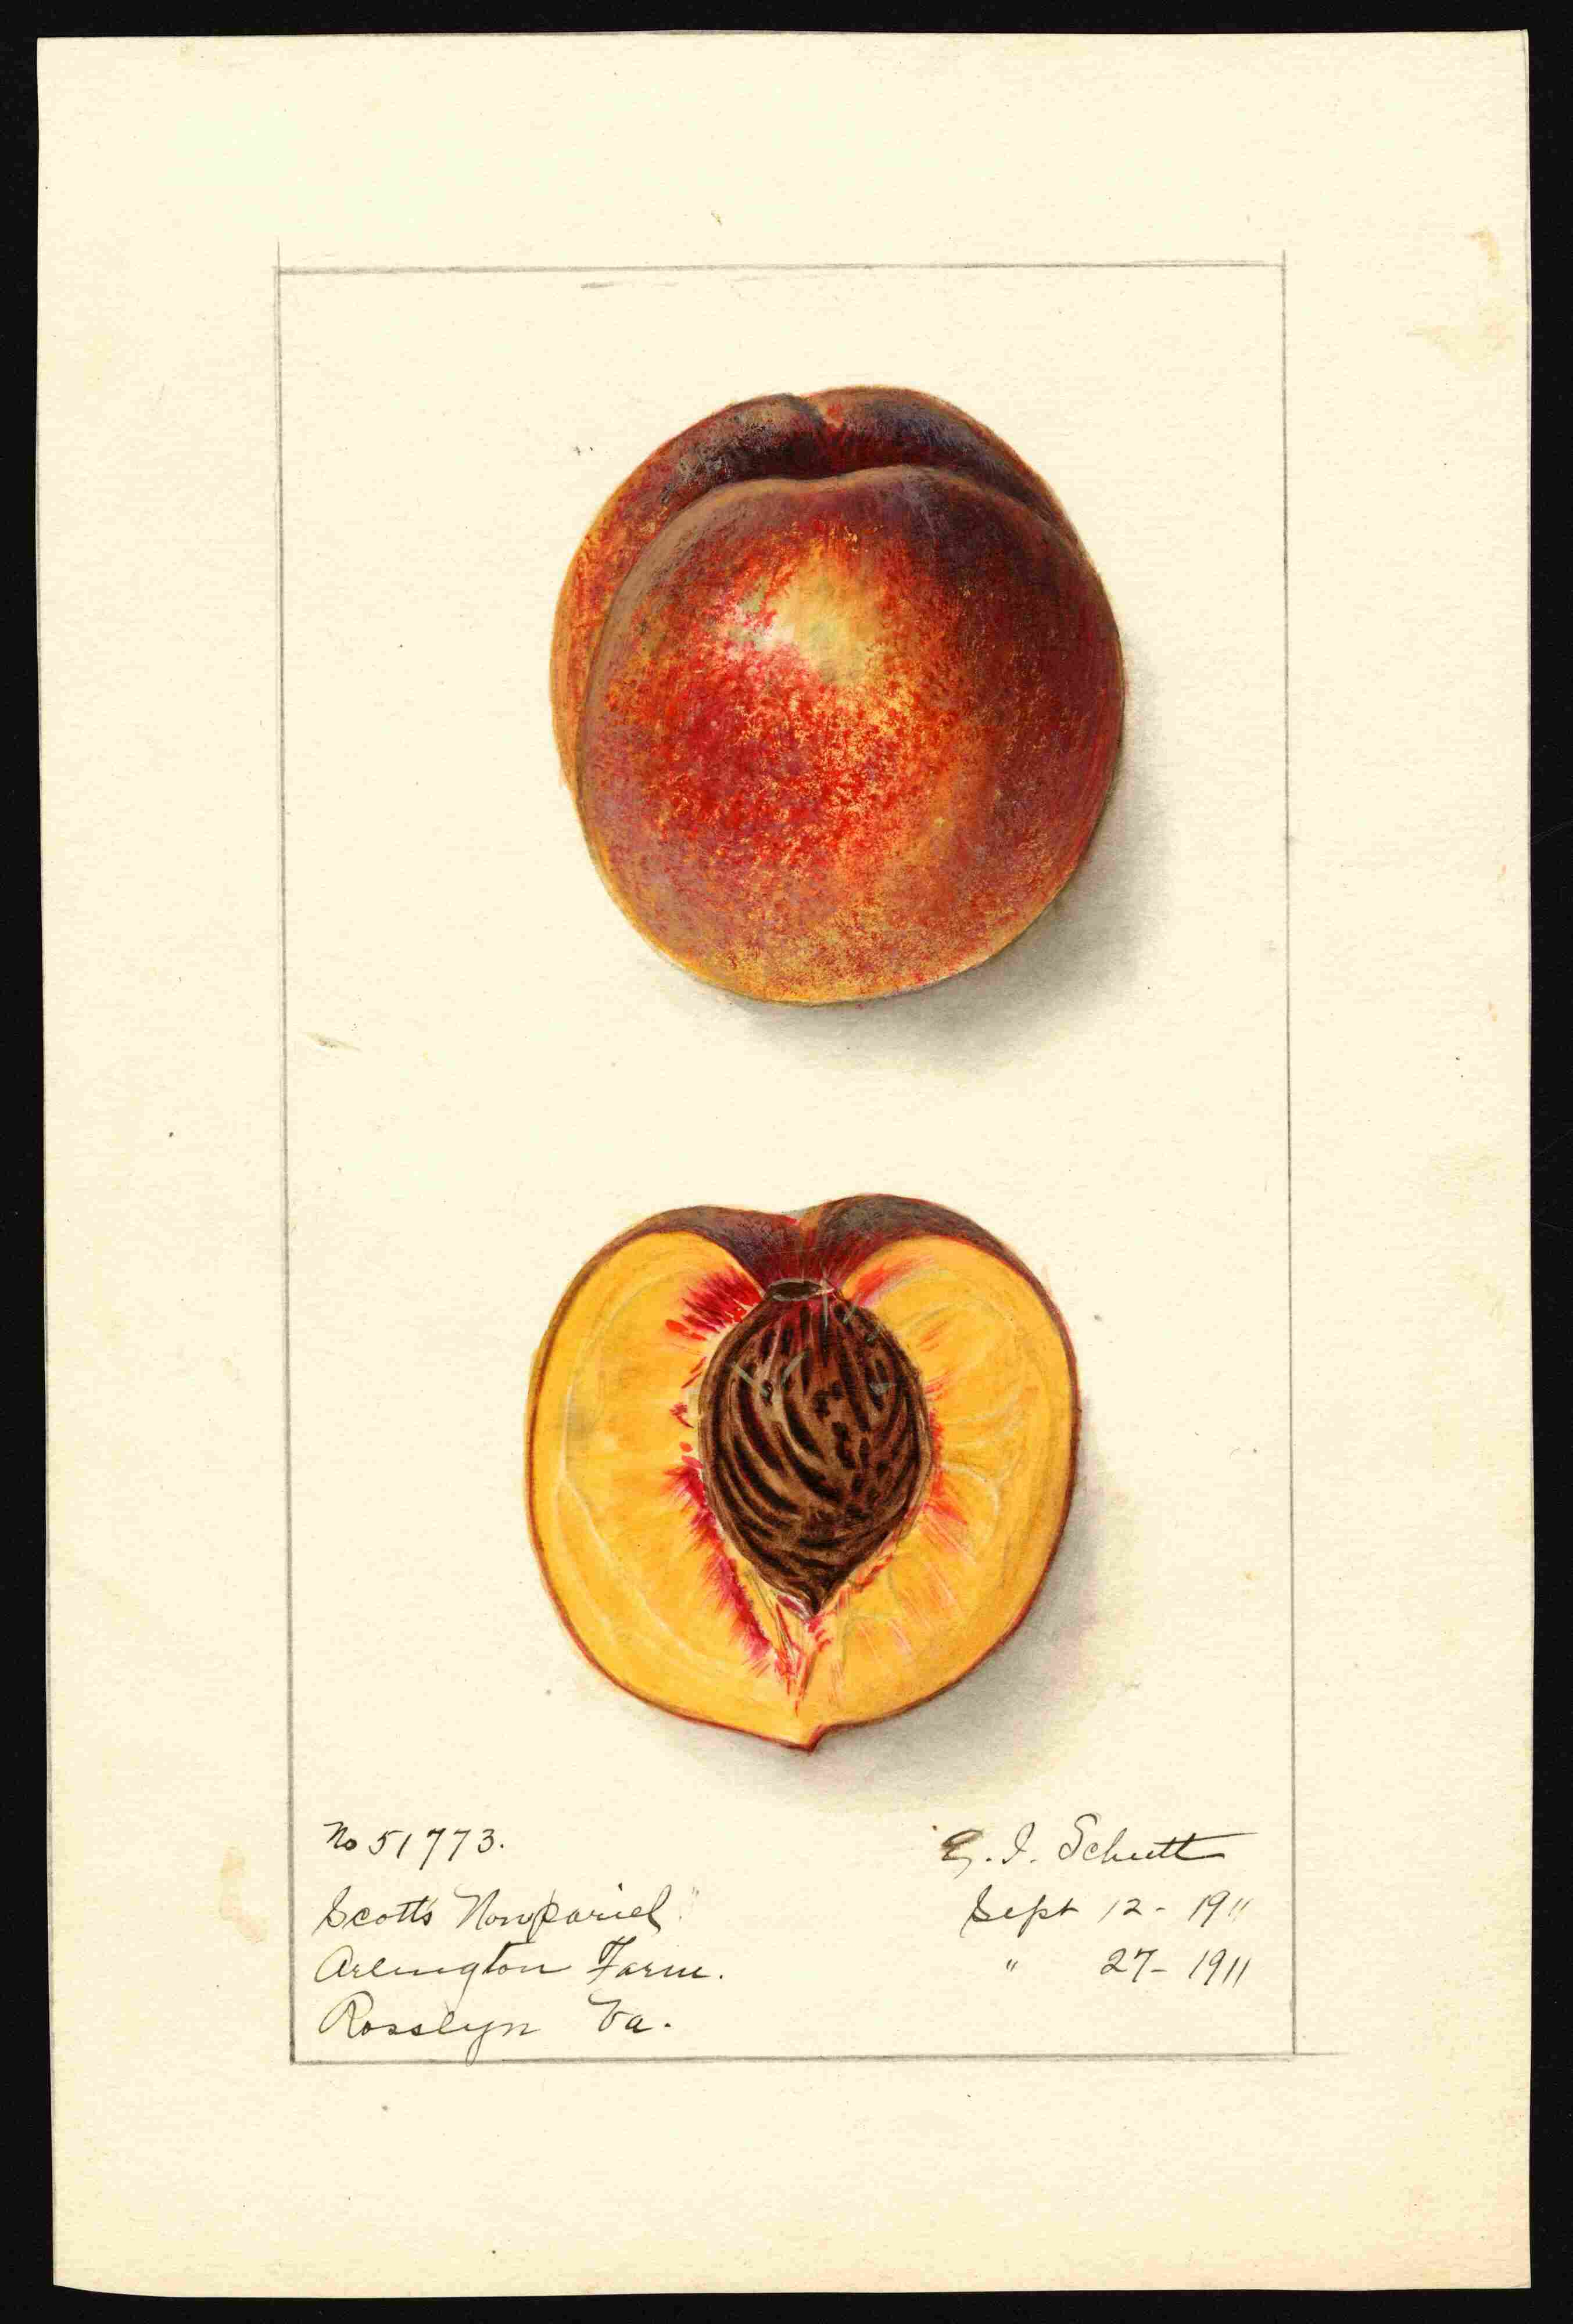 No 51773.
Scott's Nonpariel"
Arlington Farm.
Rosslyn Va.
E. I. Schutt
Sept 12- 1911
" 27- 1911